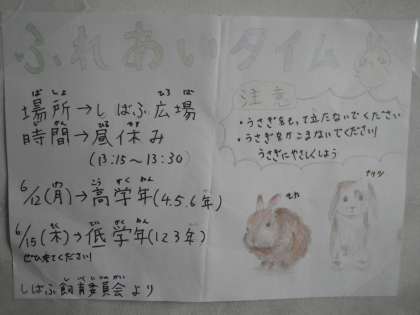 ふれあいタイム
場所→しばふ広場
時間→昼休み
(13:15〜13:30)
6/12(月)→高学年(4.5.6年)
6/15(木)→低学年(1.2.3年)
ぜひ来てください!
しばふ飼育委員会より
注意
・うさぎをもって立たないでください
・うさぎをかこまないでください!
うさぎにやさしくしよう
モカ